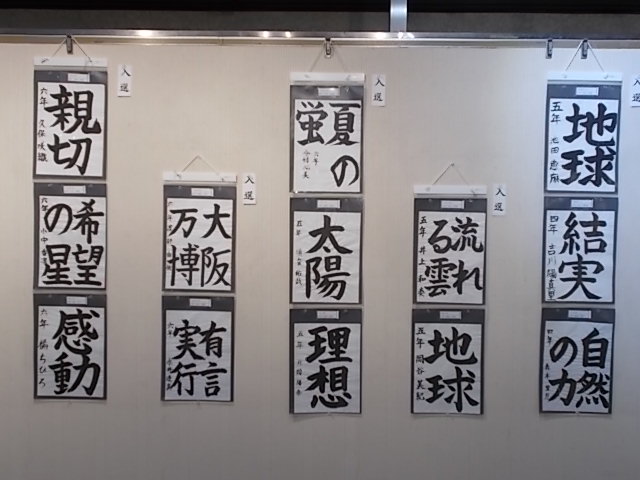 入選
親切
六年
希望
の星
六年
感動
六年
入選
大阪
万博
有言
実行
六年
入選
夏の
蛍
六年
太陽
五年
理想
五年
入選
流れ
る雲
五年 井上和奏
地球
五年 岡谷美紀
入選
地球
五年 池田恵麻
結実
四年 吉川陽真里
自然
の力
四年